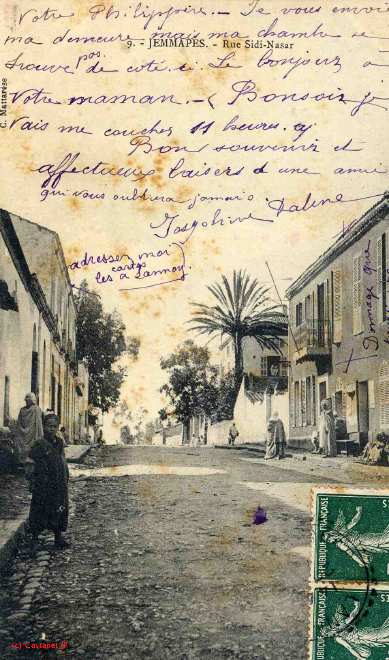 Votre Philippire. - Je vous envoi
ma demeure mais ma chambre se
9. - JEMMAPES. - Rue Sidi-Nasar
trouve pas de coté-ci. Le bonjour a
Votre maman. - Bonsoir je
Vais me coucher 11 heures.
Bon souvenir et
affectueux baisers d une amie
qui vous oubliera jamais
Joséphine
adressez moi
cartes
les à Lannoy
+ Dommage que
C. Mattarèse
REPUBLIQUE FRANÇAISE
REPUBLIQUE FRANÇAISE
(c) Castanet